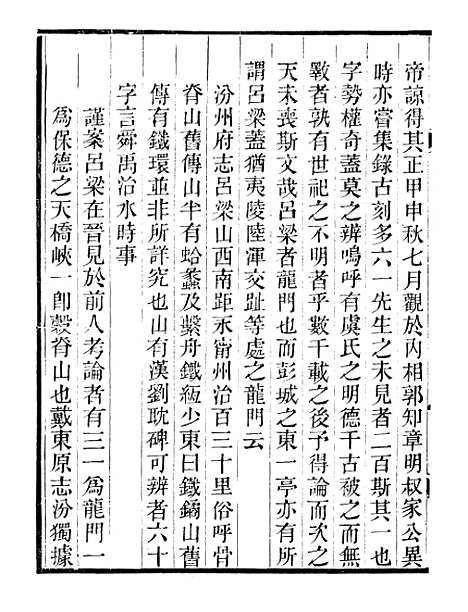 帝諒得其正甲申秋七月觀於內相郭知章明叔家公異
時亦嘗集錄古刻多六一先生之未見者二百斯其一也
字勢權奇蓋莫之辨嗚呼有虞氏之明德千古被之而無
斁者孰有世祀之不明者乎數千載之後予得論而次之
天未喪斯文哉呂梁者龍門也而彭城之東一亭亦有所
謂呂梁蓋猶夷陵陸渾交趾等處之龍門云
汾州府志呂梁山西南距永甯州治百三十里俗呼骨
脊山舊傳山半有蛤蠡及繫舟鐵絙少東曰鐵鏑山舊
傳有鐵環並非所詳究也山有漢劉耽碑可辨者六十
字言舜禹治水時事
謹案呂梁在晉見於前人考論者有三一爲龍門一
爲保德之天橋峽一卽穀脊山也戴東原志汾獨據